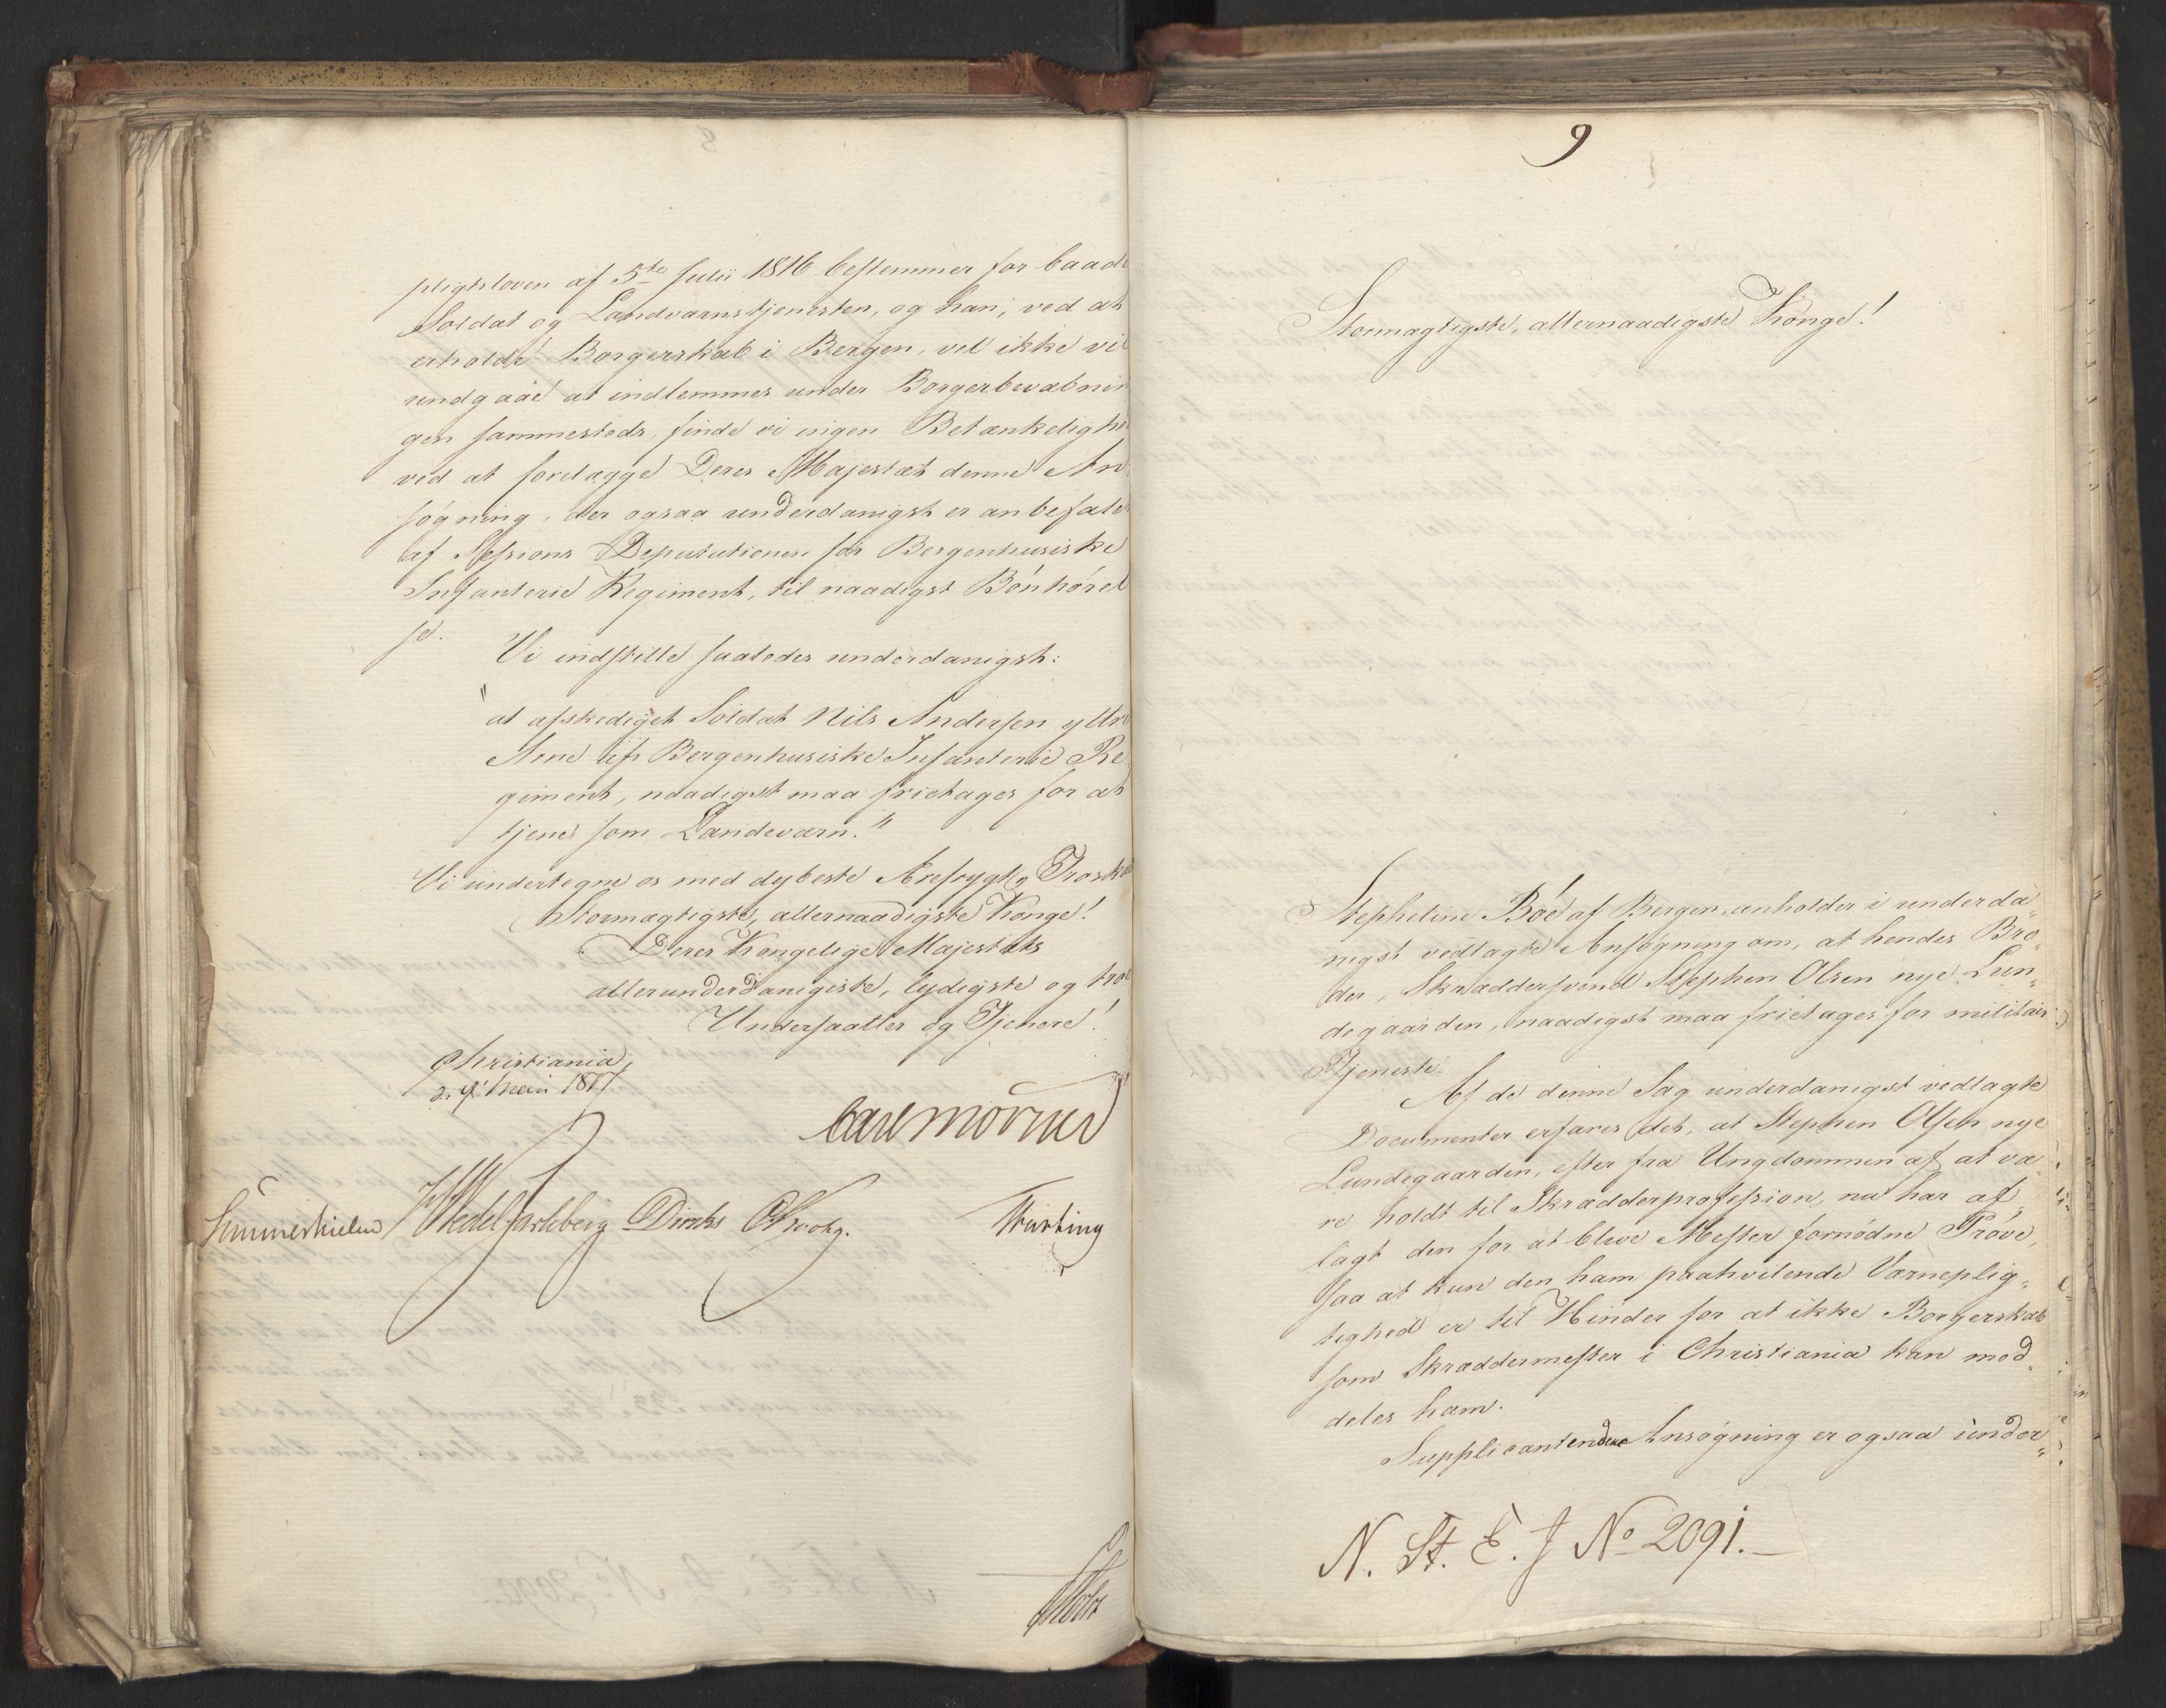 pligtsloven af 5te Julii 1816 bestemmer for baade
Soldat og Landværnstjenesten, og han, ved at
erholde Borgerskab i Bergen, vel ikke vil
undgaae at indlemmes under Borgerbevæbnin
gen sammesteds, finde vi ingen Betænkelighe
ved at forelægge Deres Majestæt denne An
søgning, der ogsaa underdanigst er anbefalet
af Sessions Deputationen for Bergenhusiske
Infanterie Regiment, til naadigst Bönhörel
se.
Vi indstille saaledes underdanigst:
"at afskediget Soldat Nils Andersen yttre
Arne af Bergenhusiske Infanterie Re
giment, naadigst maa frietages for at
tjene som Landeværn."
Vi undertegne os med dybeste Ærefrygt og Troskab
Stormægtigste, allernaadigste Konge!
Deres Kongelige Majestæts
allerunderdanigiste, lydigste og troe
Undersaatter og Tjenere!
Christiania,
d. 9' Maii 1817
Carl Mörner
Sommerhielm HWedel Jarlsberg Diriks CKrohg. Thurting
Holst
9
Stormægtigste, allernaadigste Konge!
Stepheline Böe af Bergen, anholder i underda„
nigst vedlagte Ansögning om, at hendes Bro„
der, Skræddersvend Stephen Olsen nye Lun„
degaarden, naadigst maa frietages for militair
Tjeneste.
Af de denne Sag underdanigst vedlagte
Documenter erfares det, at Stephen Olsen nye
Lundegaarden, efter fra Ungdommen af at væ„
re holdt til Skrædderprofession, nu har af„
lagt den for at blive Mester fornødne Pröve,
saa at kun den ham paahvilende Værneplig„
tighed er til Hinder for at ikke Borgerskab
som Skræddermester i Christiania kan med„
deles ham.
Supplicantendes Ansøgning er ogsaa under„
N. St. E. J No 2091.